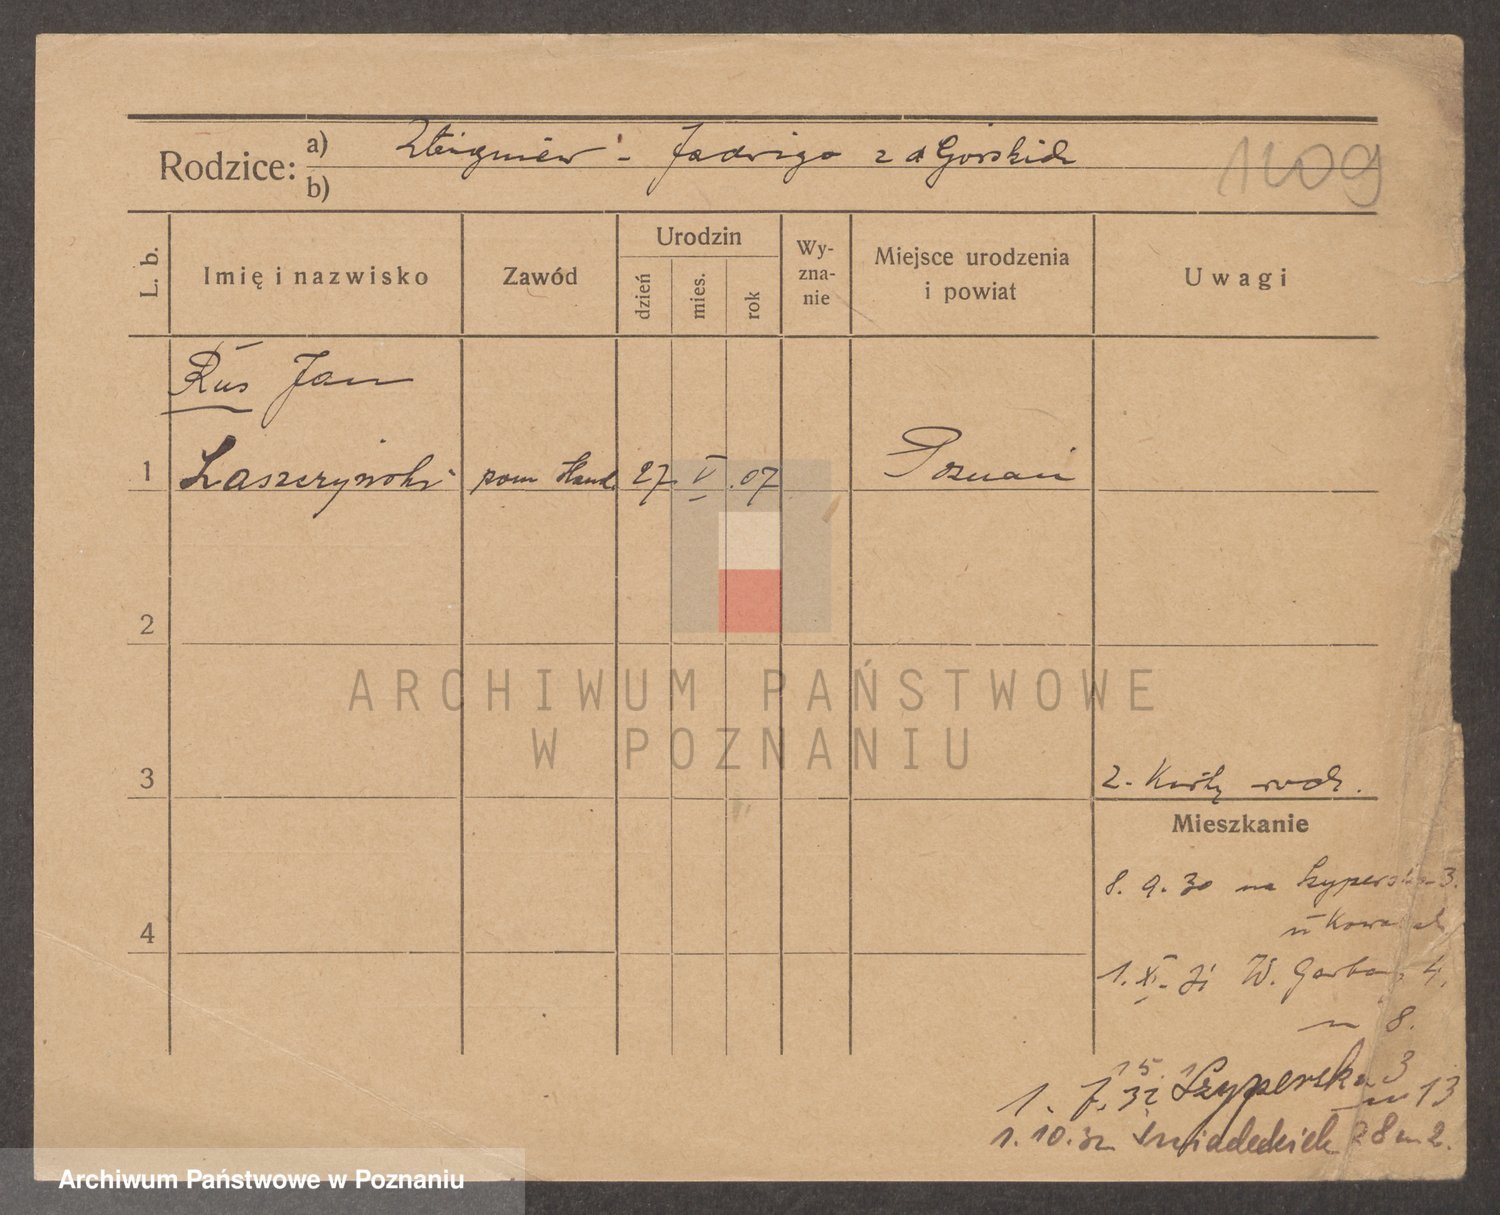 Rodzice: a) Zbigniew - Jadwiga z d Górskich
b)
1109
L. b.
Imię i nazwisko
Zawód
Urodzin
dzień
mies.
rok
Wy-
zna-
nie
Miejsce urodzenia
i powiat
Uwagi
Rus Jan
1 Laszczyński pom Hand. 27. V .07 Poznań
2
ARCHIWUM PAŃSTWOWE
W POZNANIU
3
2. Karty rodz.
Mieszkanie
8. 9. 30 na Szyperska 3.
4
u
1. XI. 31 W. Garbary 4.
m 8.
1. 7. 32 Szyperska 3
m 13
1. 10. 32 Śniadeckich 28 m 2.
Archiwum Państwowe w Poznaniu